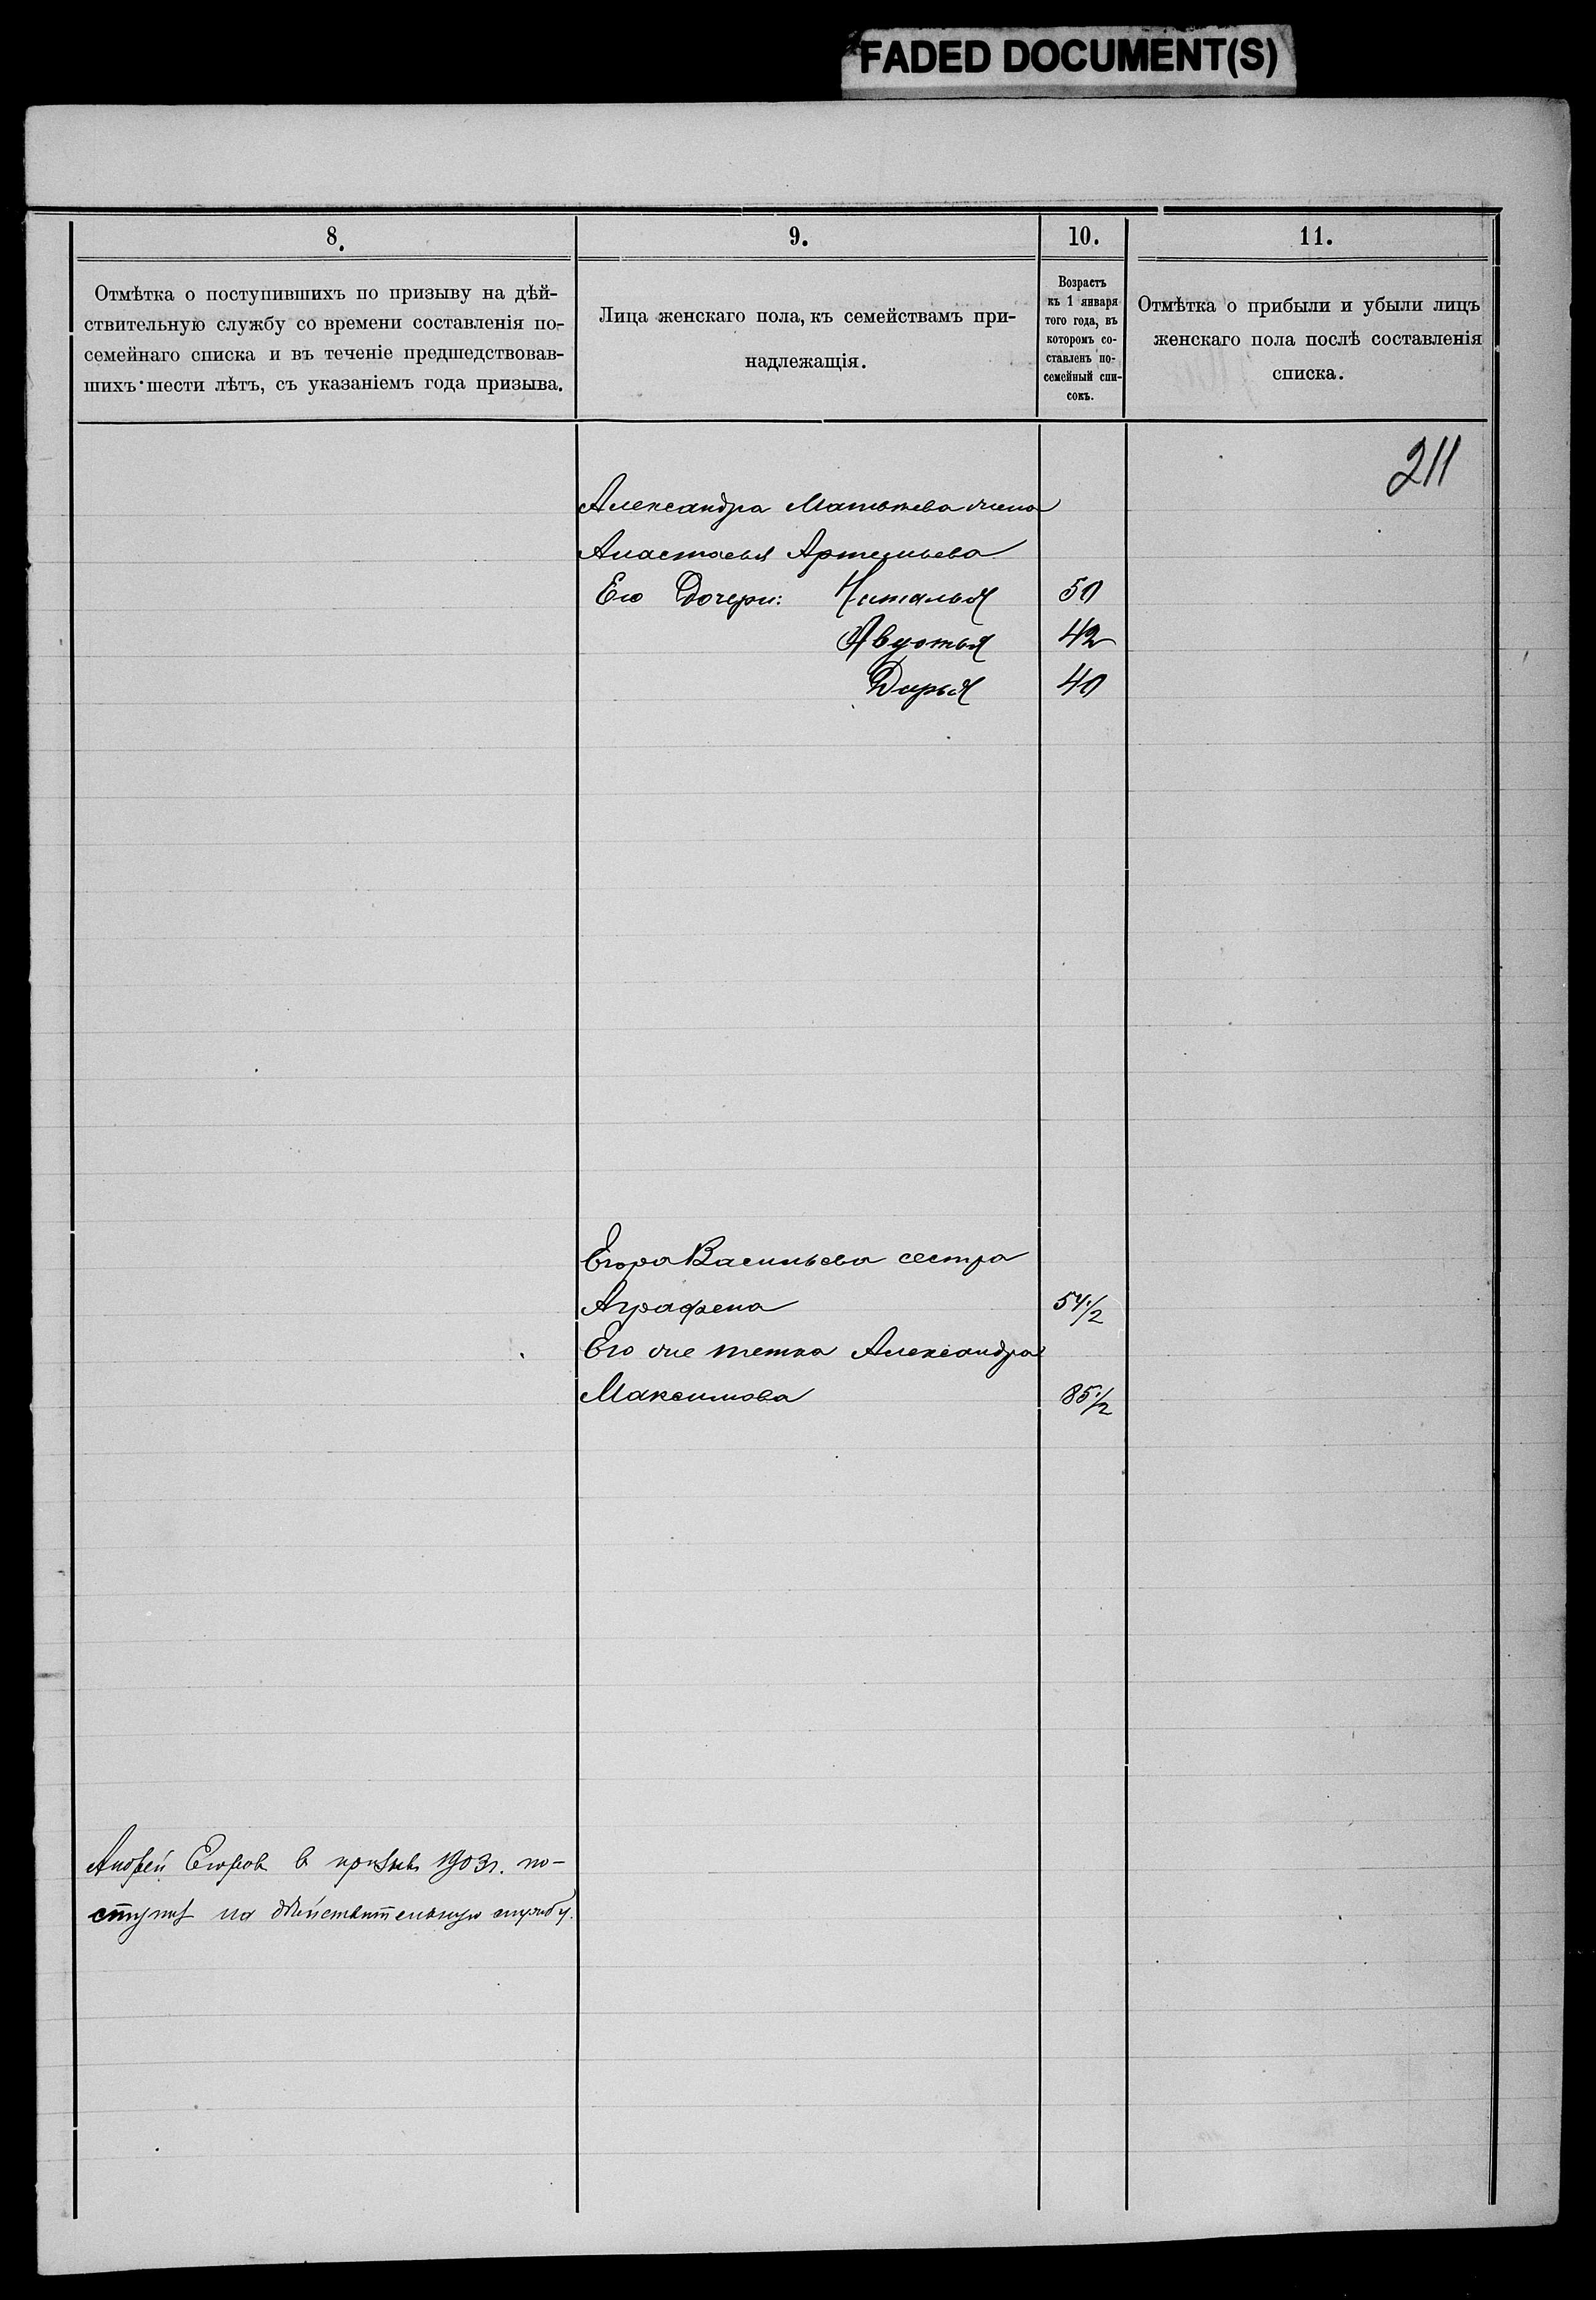 FADED DOCUMENT(S)
8.
Отмѣтка о поступившихъ по призыву на дѣй-
ствительную службу со времени составленія по-
семейнаго списка и въ теченіе предшедствовав-
шихъ шести лѣтъ, съ указаніемъ года призыва.
9.
Лица женскаго пола, къ семействамъ при-
надлежащія.
10.
Возрастъ
къ 1 января
того года, въ
которомъ со-
ставленъ по-
семейный спи-
сокъ.
11.
Отмѣтка о прибыли и убыли лицъ
женскаго пола послѣ составленія
списка.
211
Александра Матвѣева жена
Анастасья Артемьева
Его Дочери: Наталья 50
Авдотья 42
Дарья 40
Егора Васильева сестра
Аграфена 54 1/2
Его же тетка Александра
Максимова 85 1/2
Андрей Егоров в призыв 1903 г. по-
ступил на дѣйствительную службу.